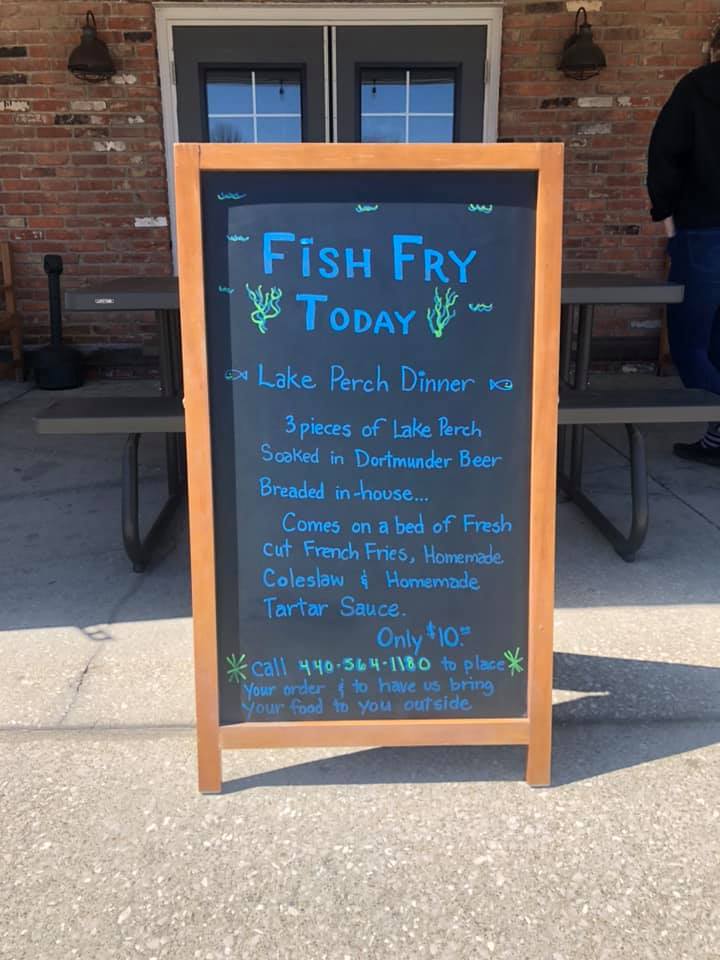 FISH FRY
TODAY
Lake Perch Dinner
3 pieces of Lake Perch
Soaked in Dortmunder Beer
Breaded in-house...
Comes on a bed of Fresh
cut French Fries, Homemade
Coleslaw & Homemade
Tartar Sauce.
Only $10.00
* call 440-564-1180 to place *
your order & to have us bring
your food to you outside